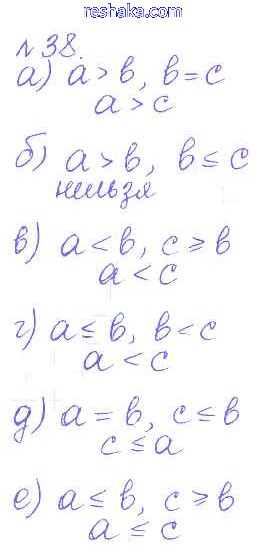 reshaka.com
№38.
а) a > b, b = c
a > c
б) a > b, b ≤ c
нельзя
в) a < b, c ≥ b
a < c
г) a ≤ b, b < c
a < c
д) a = b, c ≤ b
c ≤ a
е) a ≤ b, c ≥ b
a ≤ c